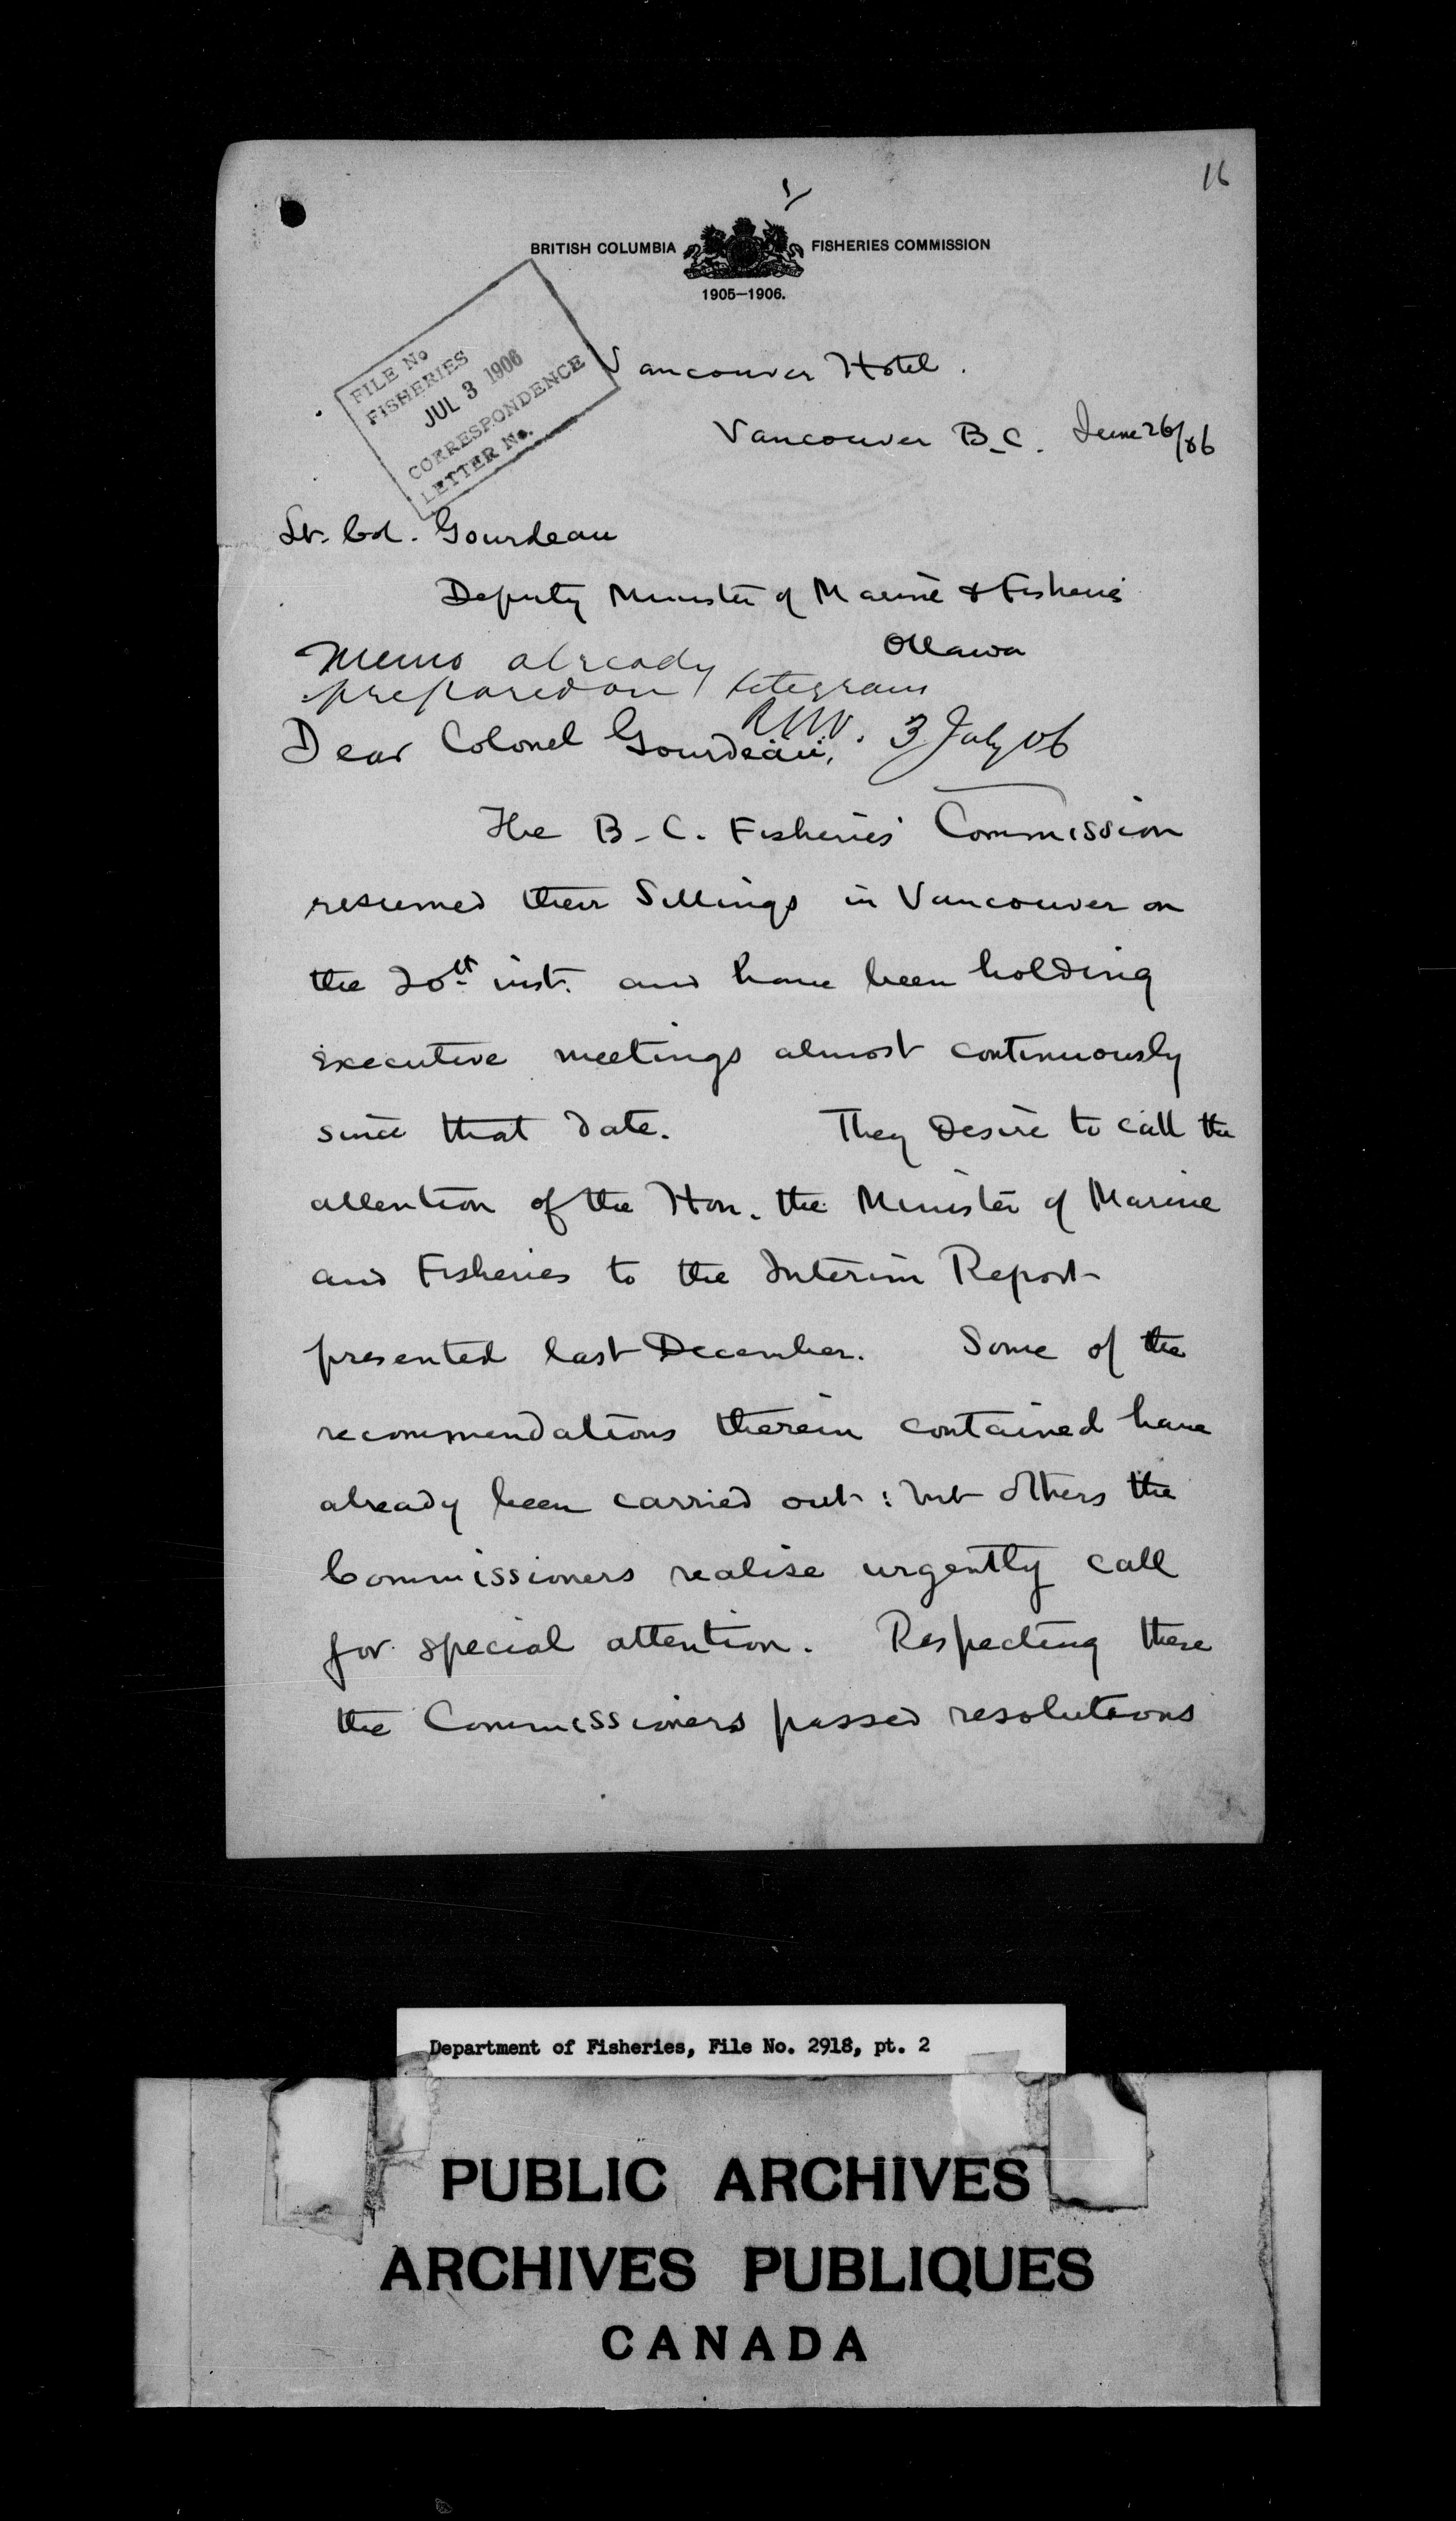 16
1
BRITISH COLUMBIA FISHERIES COMMISSION
1905–1906.
FILE No
FISHERIES
JUL 3 1906
CORRESPONDENCE
LETTER No.
Vancouver Hotel.
Vancouver B.C. June 26/06
Lt. Col. Gourdeau
Deputy Minister of Marine & Fisheries
Ottawa
Memo already
prepared on telegram
3 July 06
Dear Colonel Gourdeau,
The B.C. Fisheries Commission
resumed their Sittings in Vancouver on
the 20th inst. and have been holding
executive meetings almost continuously
since that date. They desire to call the
attention of the Hon. the Minister of Marine
and Fisheries to the Interim Report
presented last December. Some of the
recommendations therein contained have
already been carried out: but others the
Commissioners realise urgently call
for special attention. Respecting these
the Commissioners passed resolutions
Department of Fisheries, File No. 2918, pt. 2
PUBLIC ARCHIVES
ARCHIVES PUBLIQUES
CANADA